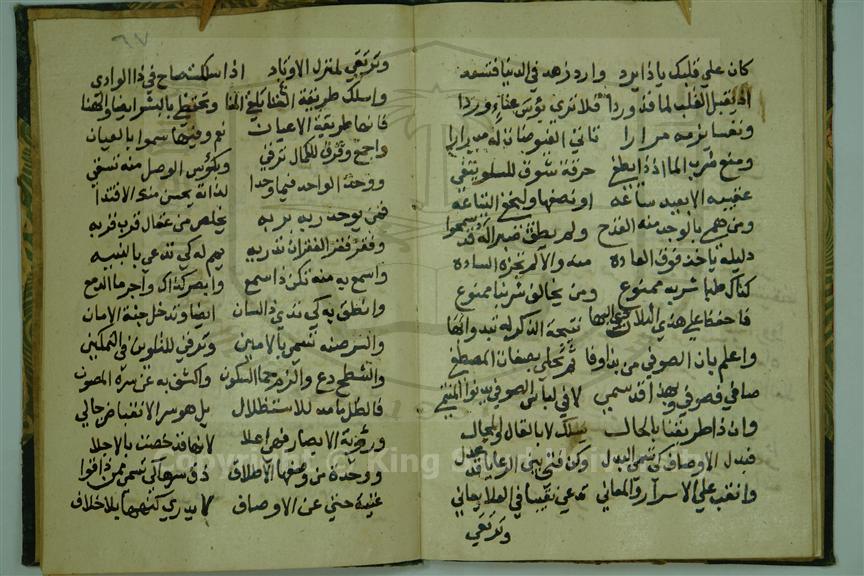 كان على قلبك يا ذا يرد وارد زهد في الدنيا فتسعد
اذ يقبل القلب لما قد وردا فلا تري بؤس عناء وردا
ونفسا يزمه مرارا تاتي الفيوضات له مدرارا
ومنع شرب الما اذ ذا يطغي حرقة شوق للسلو ينفي
عقيبه الابعيد ساعه او نصفها
ومن همم بالوجد منه القدح ولم يطق صبرا له قد
دليله ياخذ فوق العاده منه والا لم تجزه الساده
كذاك طبا شربه ممنوع ومن يخالف شربنا ممنوع
فاحفظ على هذي الثلاث نتيجة الذكر له تبدو انتها
واعلم بان الصوفي من بنا وفا ثم تحلى بصفات المصطفى
صافي فصوفي وبهذا قد سمي لا في لباس الصوفي
وان ذا طريقنا بالحال يسلك لا بالقال في المجال
فبدل الاوصاف كي تسمى البدل وكن فتى بين الرعايا قد عدل
وانقب على الاسرار والمعاني تدعى نقيبا في العلا يا جاني
وترتقي
٦٧
وترتقي لمنزل الاوتاد اذا سلكت صاح في ذا الوادي
واسلك طريقة الفنا يلغ الهنا وتحتظي بالبشر ايضا والهنا
فانها طريقة الاعيان نعم وفيها سموا بالعيان
واجمع وفرق للكمال ترقي وبكؤس الوصل منه تسقي
ووحد الواحد فيما وحدا لذاته يحسن منك الاقتدا
فمن يوحد ربه بربه يخلص من عقال قرب قربه
وفقر فقر الفقران تدريه بهم له كي تدعى بالنبيه
واسمع به منه تكن ذا سمع وابصر كذاك واجر ما الدمع
وانطق به كي تدعى ذا لسان ايضا وتدخل جنة الامان
والسر صنه تسمى بالامين وترقى للتلوين في التمكين
والشطح دع والزم حما السكون واكشف به عن سره المصون
فالطل ما مد للاستظلال بل هو سر الانقباض جالي
ورؤية الابصار فهي اعلا لانها قد خصت بالاجلا
ووحدة من وصفها الاطلاق ذق سرها كي تسمى ممن ذاقوا
غنية حتى عن الاوصاف لا يدري كنهها بلا خلاف
Copyright © King Saud University